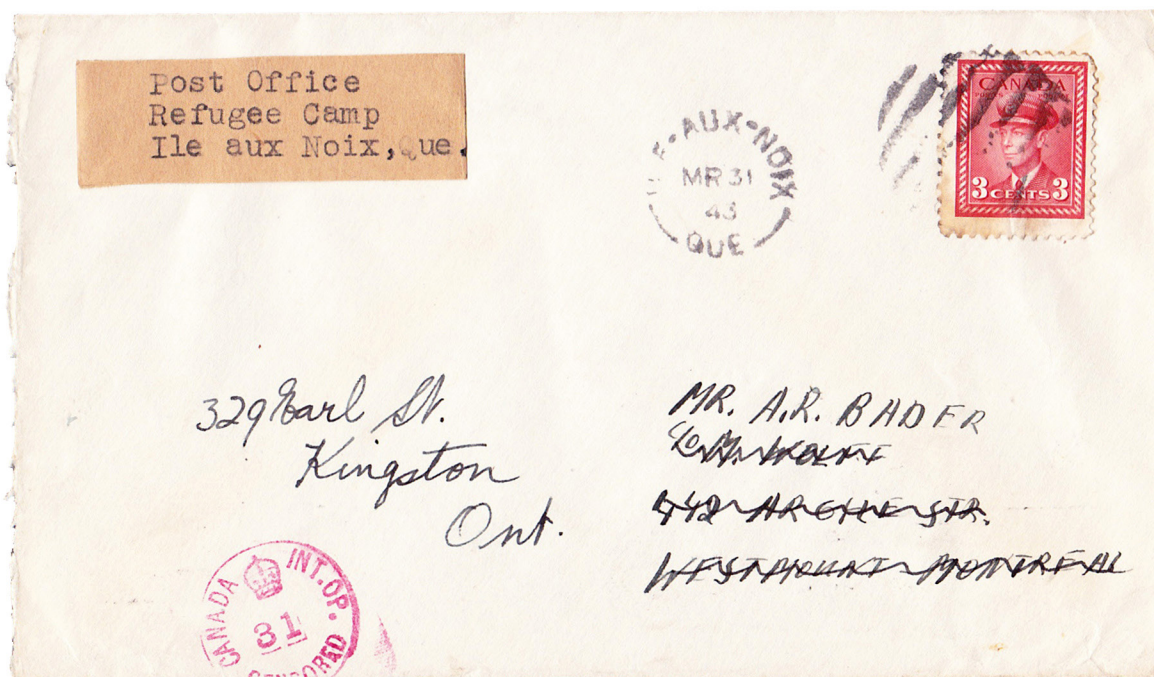 Post Office
Refugee Camp
Ile aux Noix, Que.
AUX-NOIX
MR 31
43
QUE
CANADA
3 CENTS 3
329 Earl St.
Kingston
Ont.
MR. A.R. BADER
c/o M. WOLFF
442 ARGYLE STR.
WESTMOUNT MONTREAL
CANADA INT.OP.
31
CENSORED